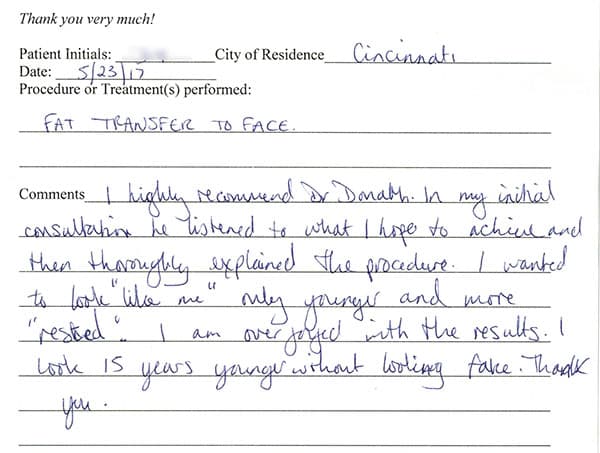 Thank you very much!
Patient Initials: City of Residence Cincinnati
Date: 5/23/17
Procedure or Treatment(s) performed:
FAT TRANSFER TO FACE.
Comments I highly recommend Dr Donath. In my initial
consultation he listened to what I hope to achieve and
then thoroughly explained the procedure. I wanted
to look "like me" only younger and more
"rested". I am overjoyed with the results. I
look 15 years younger without looking fake. Thank
you.